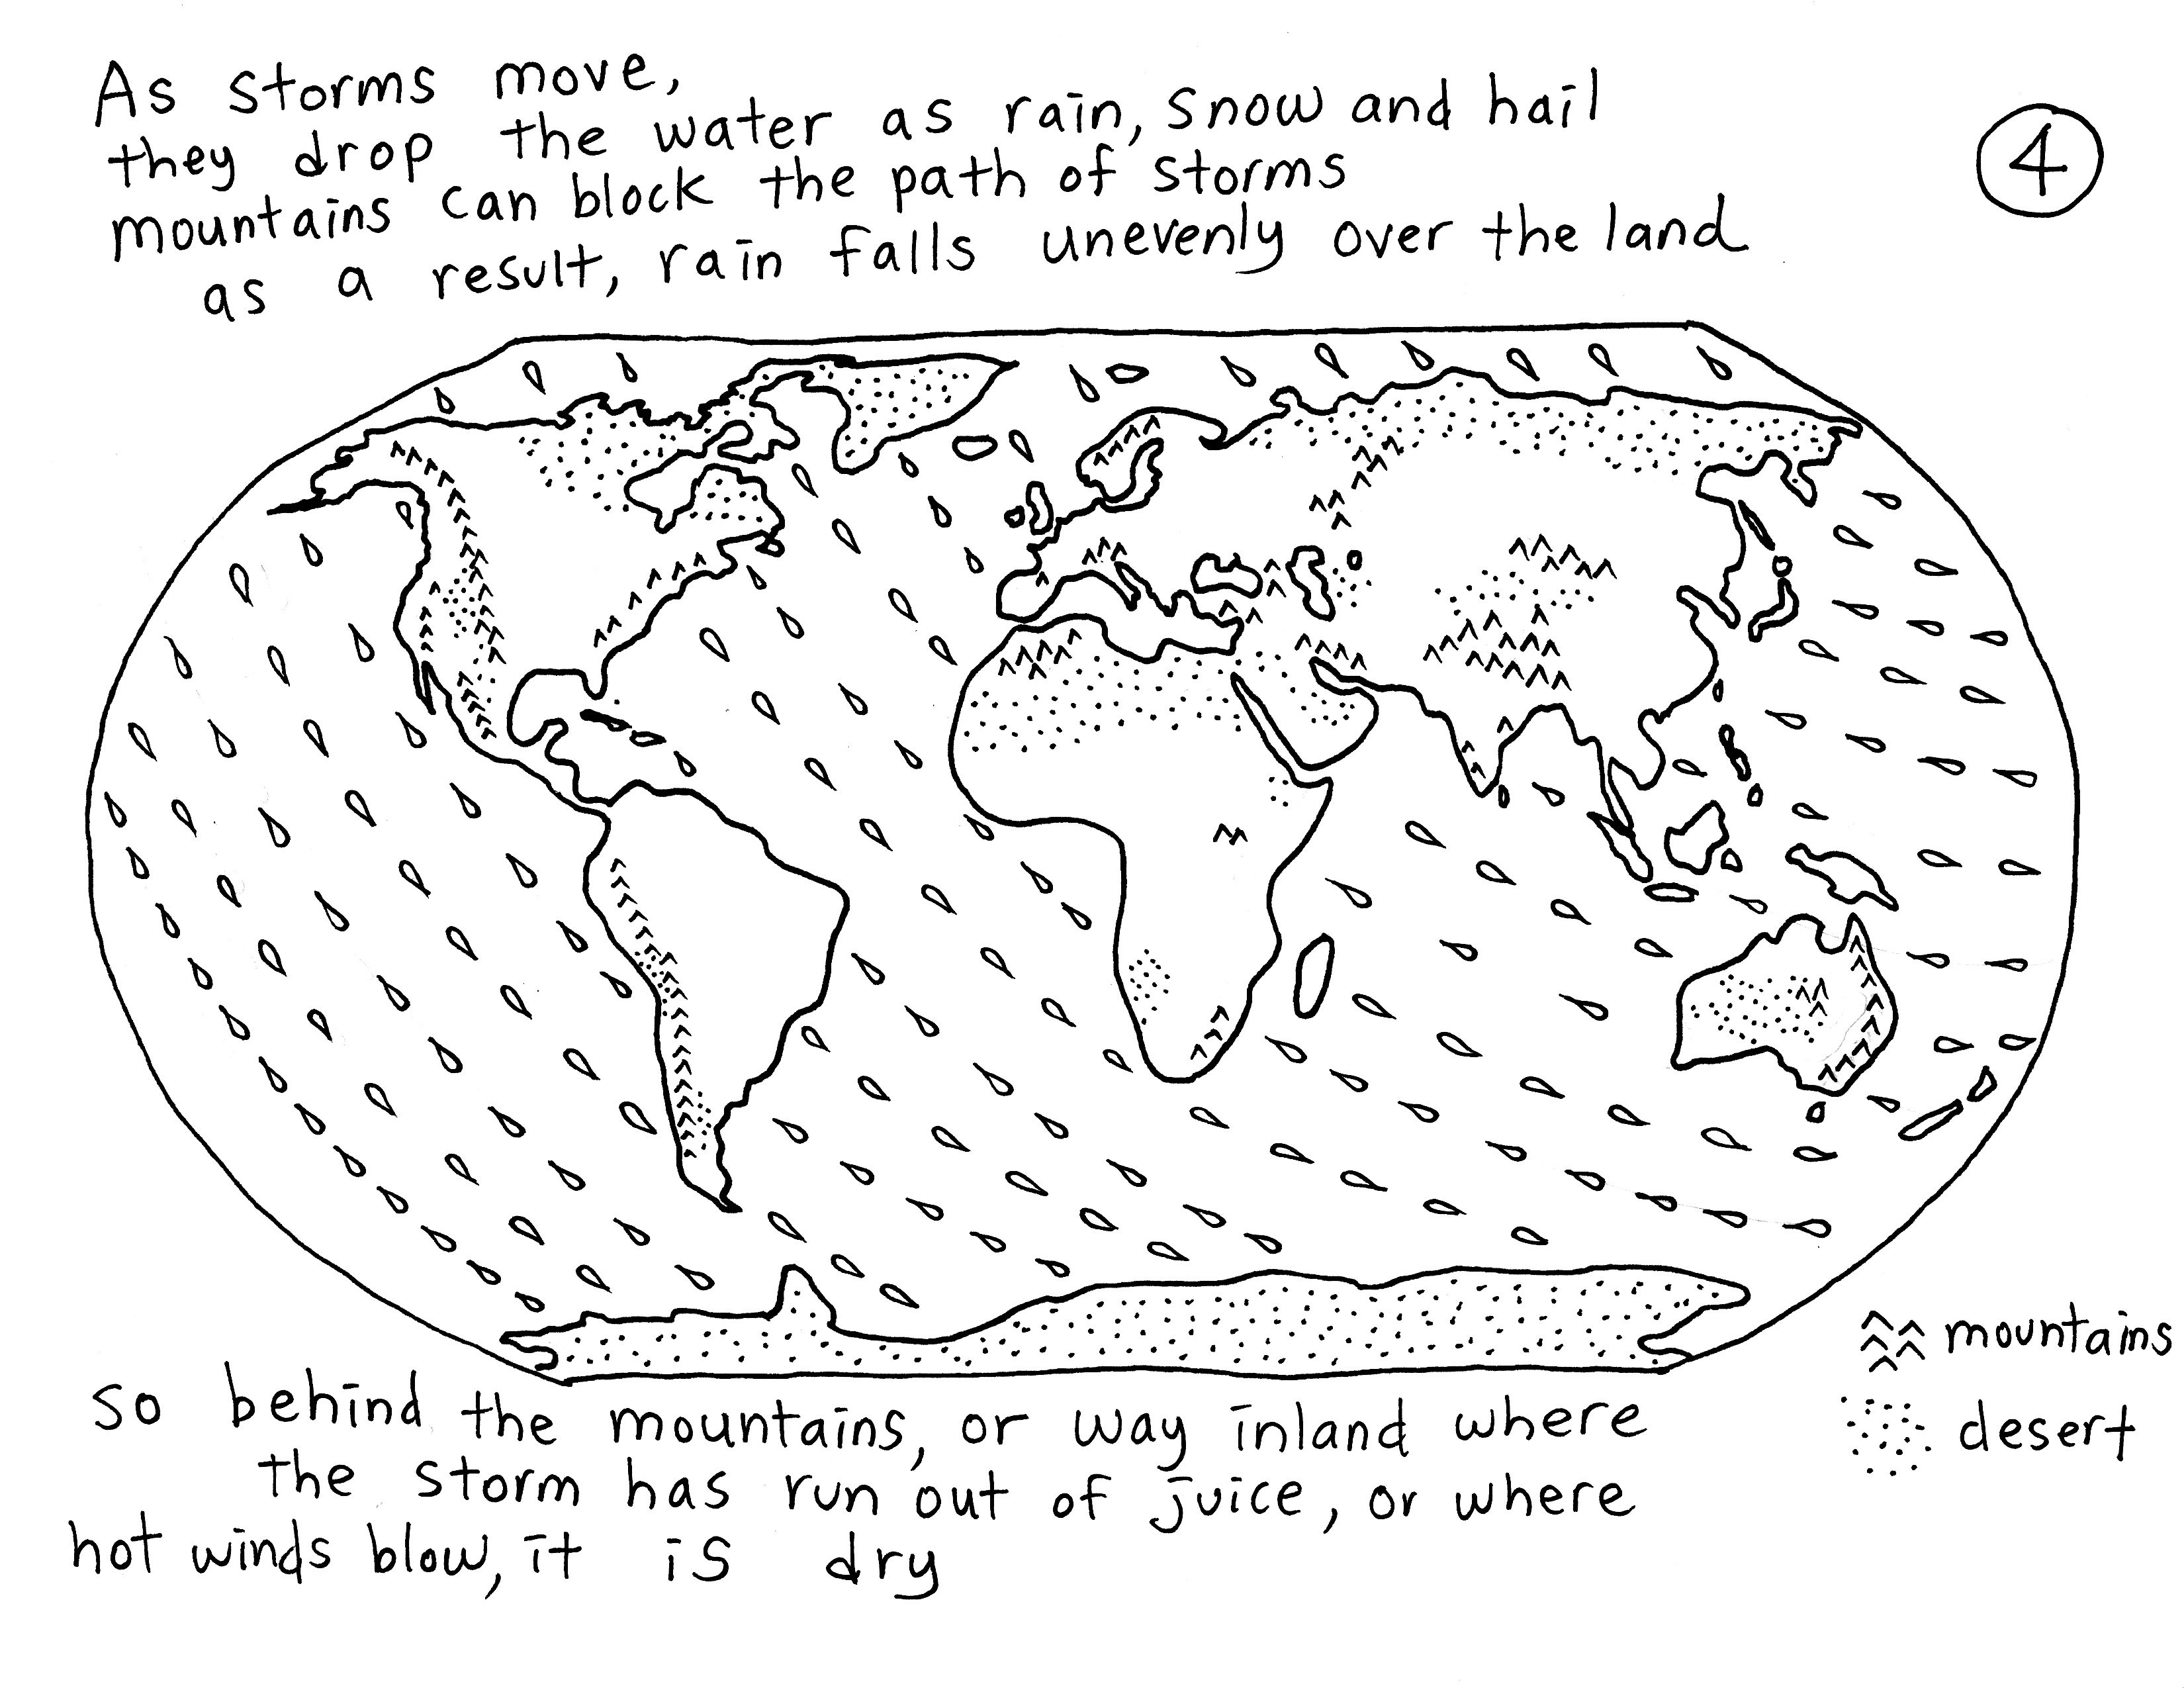 As storms move,
they drop the water as rain, snow and hail
mountains can block the path of storms
as a result, rain falls unevenly over the land
4
mountains
desert
so behind the mountains, or way inland where
the storm has run out of juice, or where
hot winds blow, it is dry